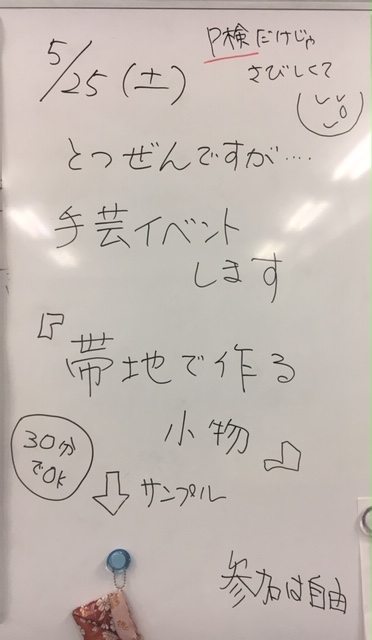 5/25(土)
P検だけじゃ
さびしくて
とつぜんですが....
手芸イベント
します
『帯地で作る
小物』
30分
でOK
サンプル
参加は自由